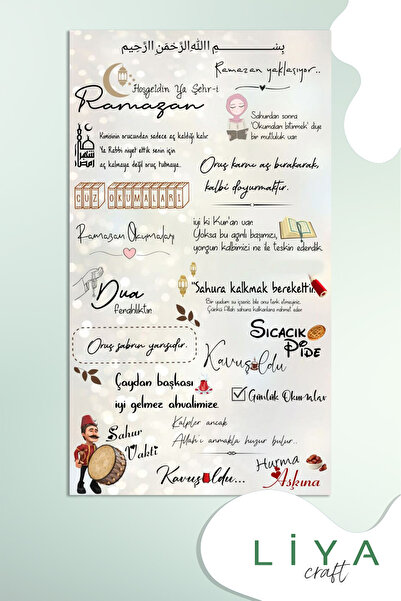 بِسْمِ اللهِ الرَّحْمٰنِ الرَّحِيمِ
Ramazan yaklaşıyor..
Hoşgeldin Ya Şehr-i
Ramazan
Sahurdan sonra
'Okumaları bitirmek' diye
bir mutluluk var.
Kimisinin orucundan sadece aç kaldığı kalır
Ya Rabbi niyet ettik senin için
aç kalmaya değil oruç tutmaya.
Oruç karnı aç bırakarak,
kalbi doyurmaktır.
CÜZ OKUMALARI
iyi ki Kur'an var.
Yoksa bu ağrılı başımızı,
yorgun kalbimizi ne ile teskin ederdik.
Ramazan Okumaları
Dua
ferahlıktır.
"Sahura kalkmak berekettir.
Bir yudum su içseniz bile onu terk etmeyiniz.
Çünkü Allah sahura kalkanlara rahmet eder
Oruç sabrın yarısıdır.
SICACIK
PİDE
Kavuşoldu
Çaydan başkası
iyi gelmez ahvalimize.
Günlük Okumalar
Kalpler ancak
Allah'ı anmakla huzur bulur..
Sahur
Vakti
Kavuşoldu...
Hurma
Aşkına
LİYA
craft